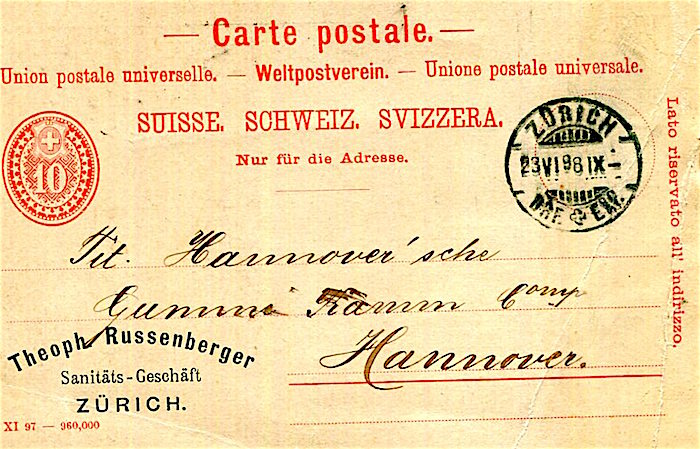 — Carte postale. —
Union postale universelle. — Weltpostverein. — Unione postale universale.
SUISSE. SCHWEIZ. SVIZZERA.
Nur für die Adresse.
10
ZÜRICH
23 VI 98 IX
BRF. EXP.
Lato riservato all' indirizzo.
Tit. Hannover'sche
Gummi Kamm Comp
Hannover.
Theoph. Russenberger
Sanitäts-Geschäft
ZÜRICH.
XI 97 — 960,000